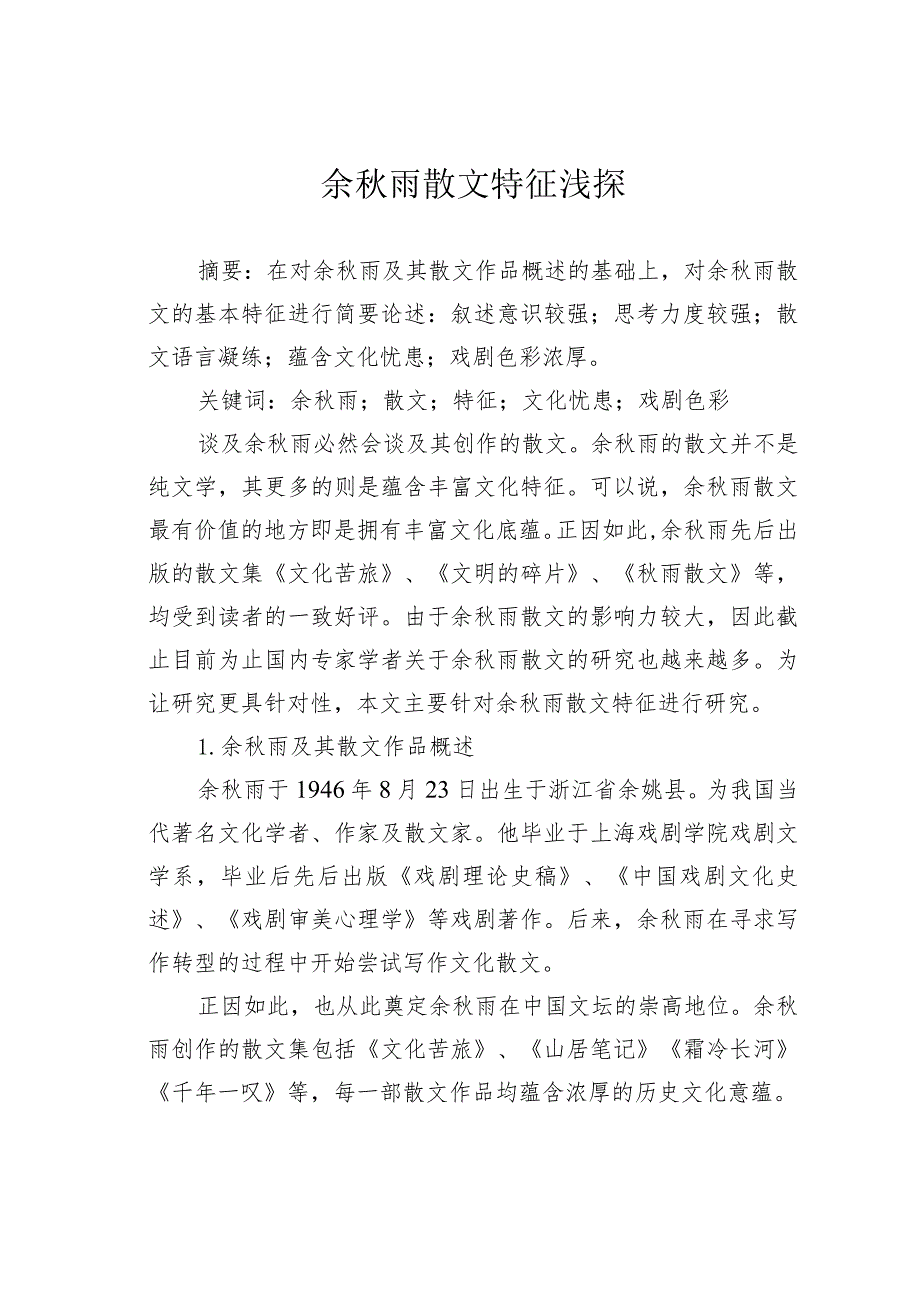 余秋雨散文特征浅探
摘要：在对余秋雨及其散文作品概述的基础上，对余秋雨散
文的基本特征进行简要论述：叙述意识较强；思考力度较强；散
文语言凝练；蕴含文化忧患；戏剧色彩浓厚。
关键词：余秋雨；散文；特征；文化忧患；戏剧色彩
谈及余秋雨必然会谈及其创作的散文。余秋雨的散文并不是
纯文学，其更多的则是蕴含丰富文化特征。可以说，余秋雨散文
最有价值的地方即是拥有丰富文化底蕴。正因如此，余秋雨先后出
版的散文集《文化苦旅》、《文明的碎片》、《秋雨散文》等，
均受到读者的一致好评。由于余秋雨散文的影响力较大，因此截
止目前为止国内专家学者关于余秋雨散文的研究也越来越多。为
让研究更具针对性，本文主要针对余秋雨散文特征进行研究。
1.余秋雨及其散文作品概述
余秋雨于 1946 年 8 月 23 日出生于浙江省余姚县。为我国当
代著名文化学者、作家及散文家。他毕业于上海戏剧学院戏剧文
学系，毕业后先后出版《戏剧理论史稿》、《中国戏剧文化史
述》、《戏剧审美心理学》等戏剧著作。后来，余秋雨在寻求写
作转型的过程中开始尝试写作文化散文。
正因如此，也从此奠定余秋雨在中国文坛的崇高地位。余秋
雨创作的散文集包括《文化苦旅》、《山居笔记》《霜冷长河》
《千年一叹》等，每一部散文作品均蕴含浓厚的历史文化意蕴。